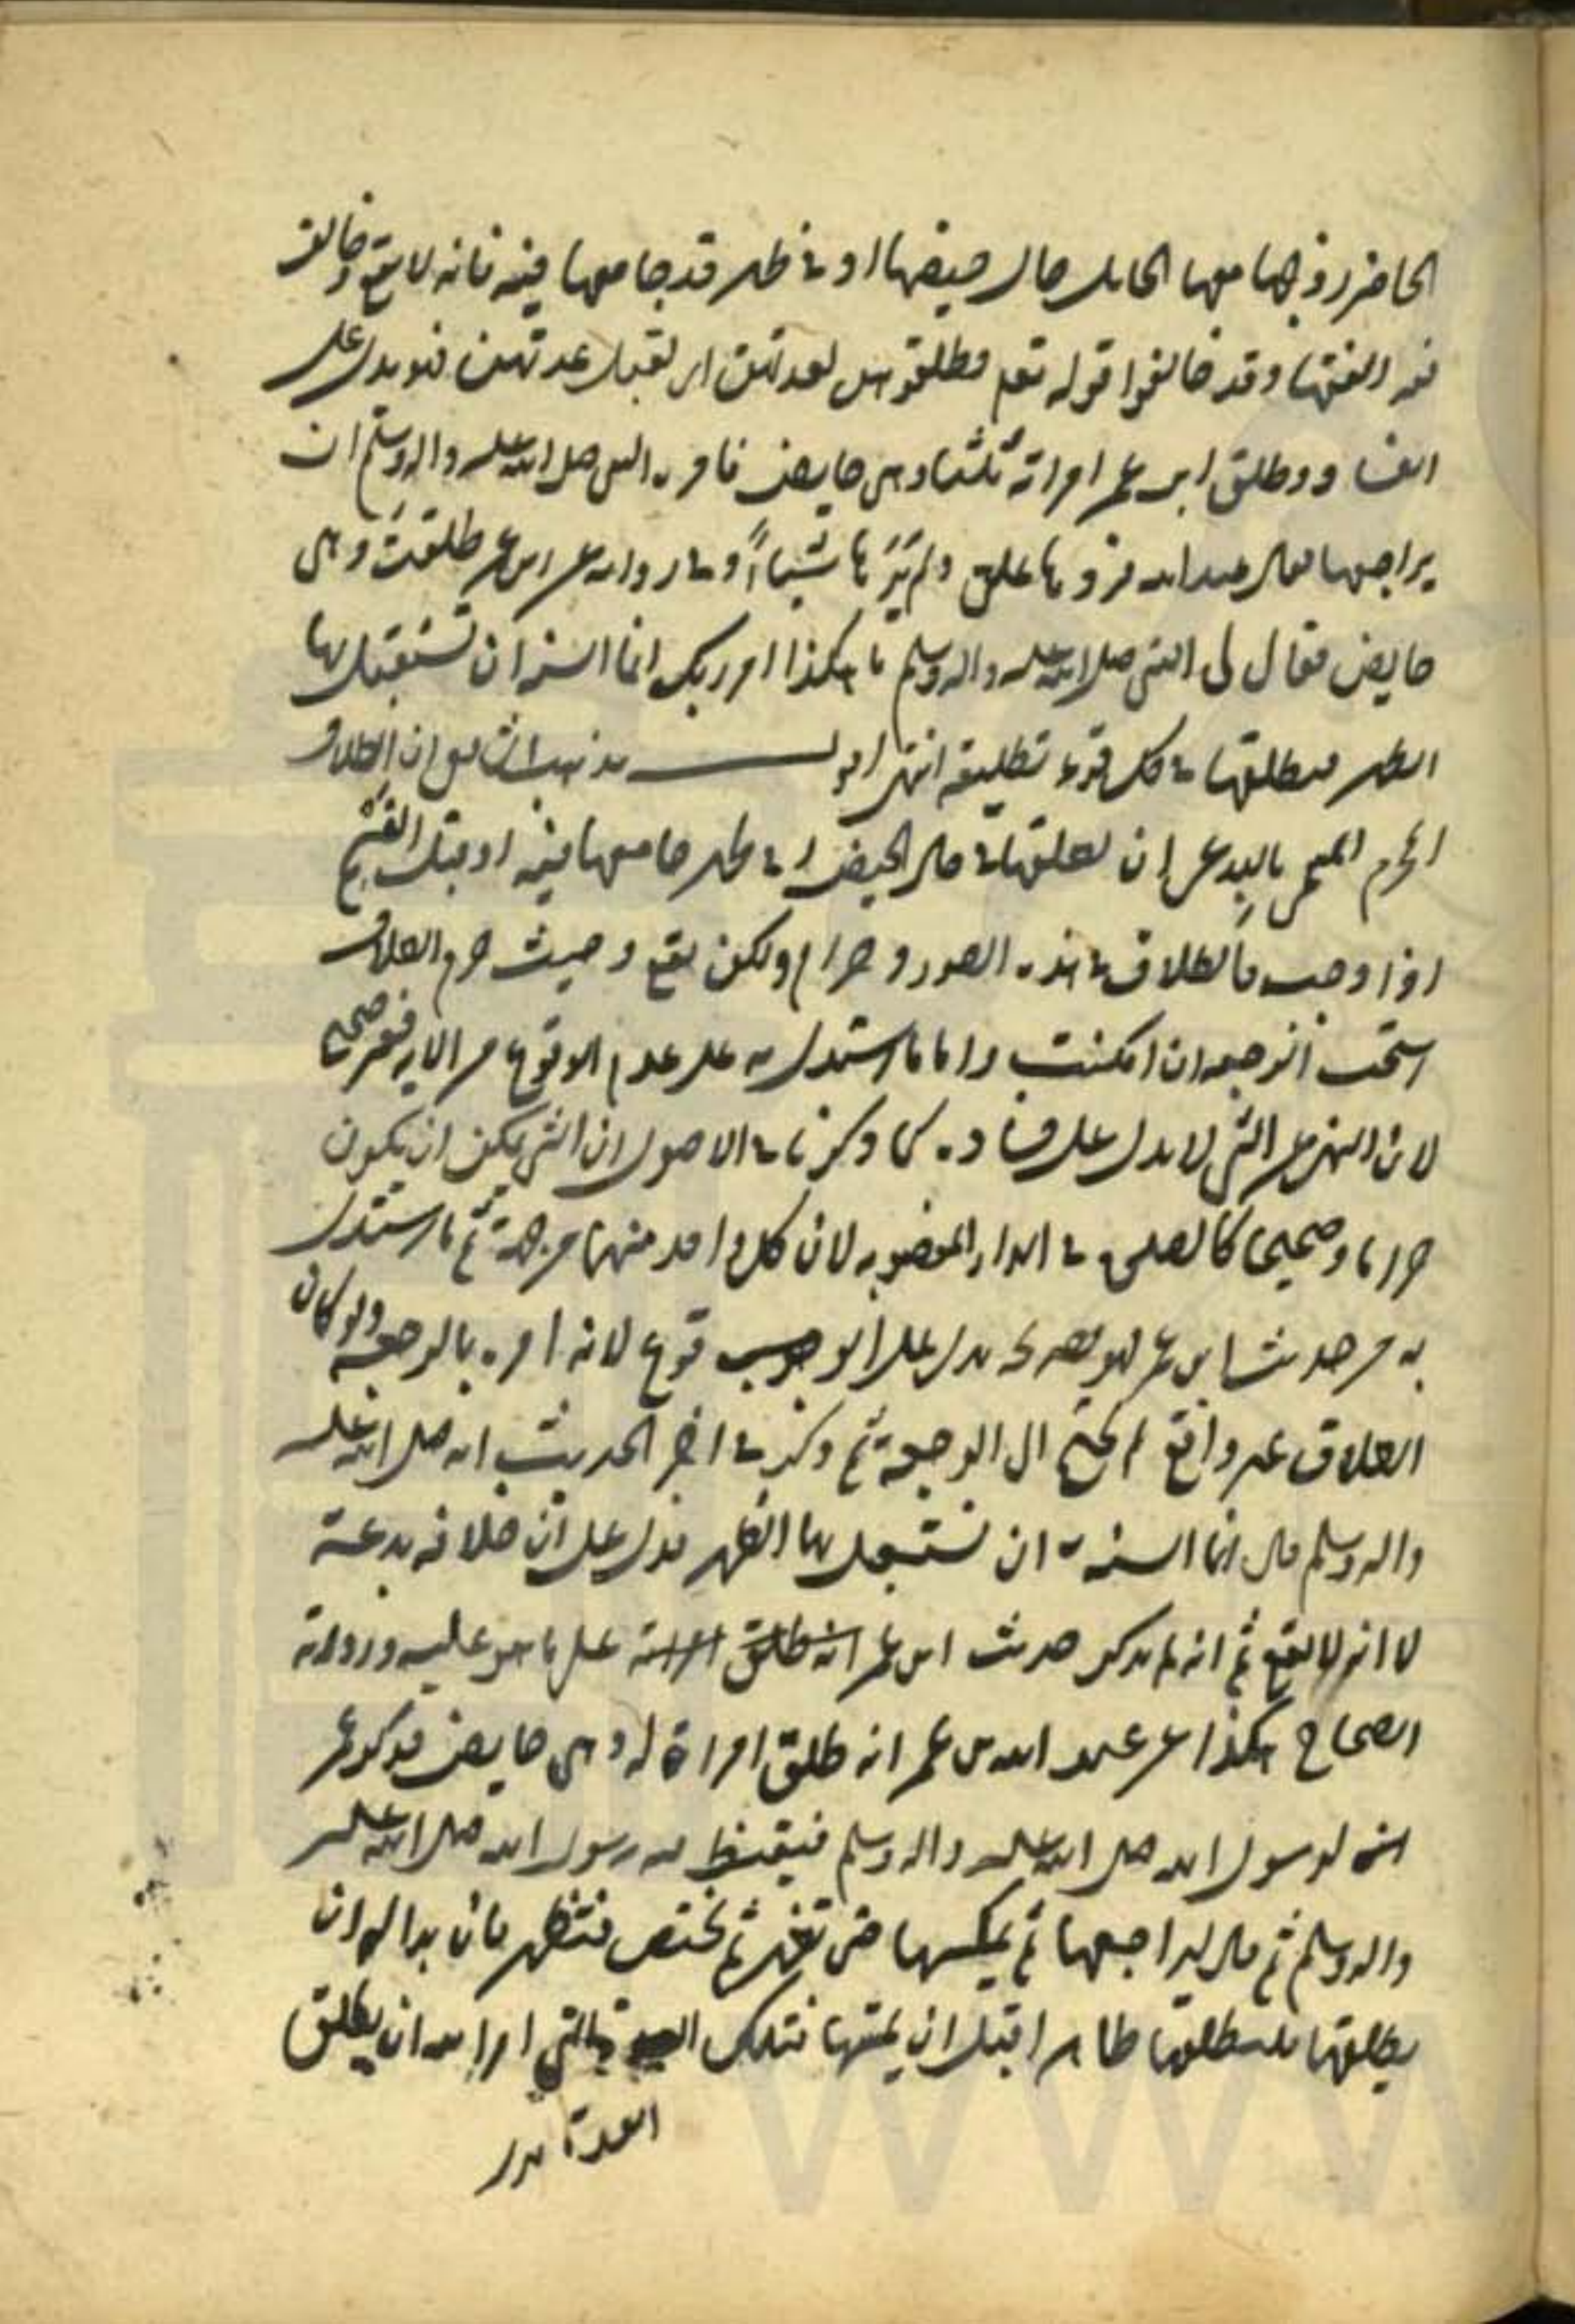 الحاضر زوجها معها الحايل حال حيضها او في طهر قد جامعها فيه فانه لا يقع وخالف
فيه الفقها وقد خالفوا قوله تعم فطلقوهن لعدتهن اى لقبل عدتهن فهو يدل على
الفسا ووطلق ابن عمر امراته ثلثا وهى حايض فامره النبى صلى الله عليه واله وسلم ان
يراجعها فقال عبد الله فردها على ولم يرها شيئا وفى رواية عن ابن عمر طلقت وهى
حايض فقال لى النبى صلى الله عليه واله وسلم ما هكذا امر ربك انما السنة ان تستقبل بها
الطهر فيطلقها فى كل قرء تطليقة انتهى اقول مذهب الشافعى ان الطلاق
المحرم المسمى بالبدعى ان يطلقها فى حال الحيض او فى طهر جامعها فيه او قبل القسم
اذا وجب فالطلاق فى هذه الصورة حرام ولكن يقع وحيث حرم الطلاق
استحب الرجعة ان امكنت واما ما استدل به على عدم الوقوع من الاية فغير صحيح
لان النهى عن الشى لا يدل على فساده كما ذكرنا فى الاصول ان الشى يمكن ان يكون
حراما وصحيحا كالصلوة فى الدار المغصوبة لان كل واحد منهما من جهة ثم ما استدل
به من حديث ابن عمر فهو بصريحه يدل على الوقوع لانه امره بالرجعة ولو كان
الطلاق غير واقع لم يحتج الى الرجعة ثم ذكر فى اخر الحديث انه صلى الله عليه
واله وسلم قال انما السنة ان تستقبل بها الطهر فدل على ان خلافه بدعة
لا انه لا يقع ثم انه لم يذكر حديث ابن عمر انه طلق امراته على ما هو عليه ورواية
الصحاح هكذا عن عبد الله بن عمر انه طلق امراة له وهى حايض فذكر عمر
لرسول الله صلى الله عليه واله وسلم فتغيظ فيه رسول الله صلى الله عليه
واله وسلم ثم قال ليراجعها ثم يمسكها حتى تطهر ثم تحيض فتطهر فان بدا له ان
يطلقها فليطلقها طاهرا قبل ان يمسها فتلك العدة التى امر الله ان يطلق